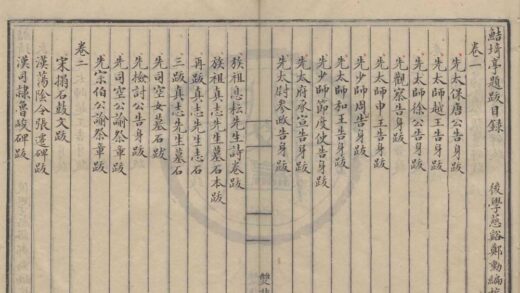 鮚埼亭題跋目錄
後學慈谿鄭勳編
卷一
先太保唐公告身跋
先太師越王告身跋
先太師徐公告身跋
先觀察告身跋
先太師申王告身跋
先少師周告身跋
先太師和王告身跋
先少師節度使告身跋
先太府承宣告身跋
先太尉參政告身跋
雙
族祖息耘先生詩卷跋
族祖真志先生墓石本跋
再跋真志先生志石
三跋真志先生墓石
先司空女墓石跋
先檢討公告身跋
先司空公諭祭章跋
先宗伯公諭祭章跋
卷二
宋搨石鼓文跋
漢蕩陰令張遷碑跋
漢司隸魯峻碑跋